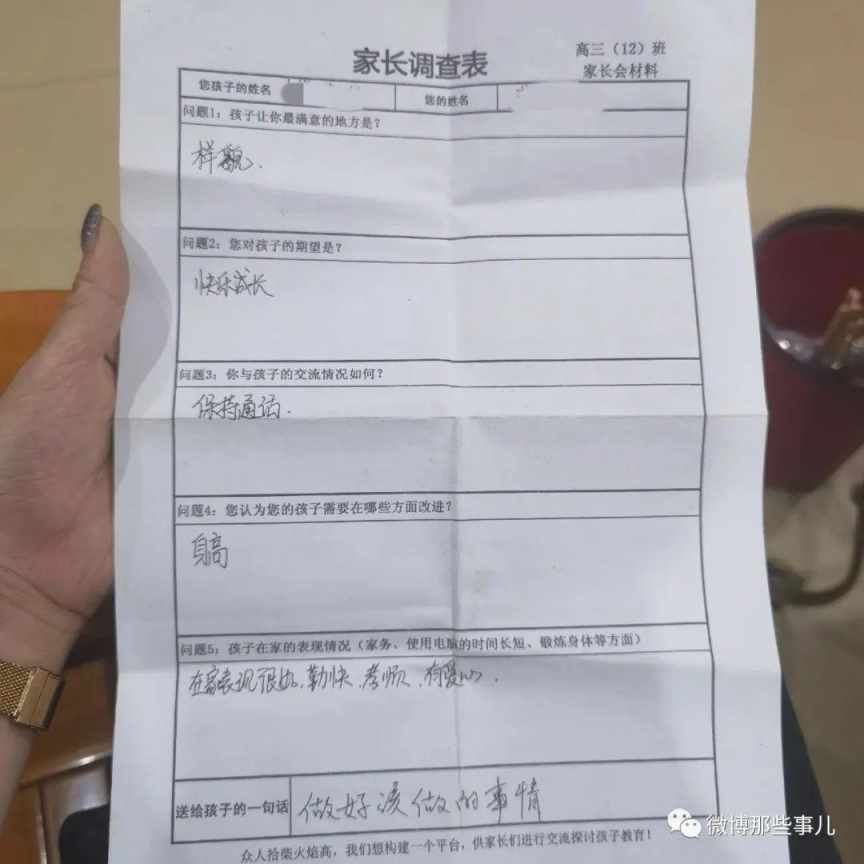 家长调查表
高三（12）班
家长会材料
您孩子的姓名
您的姓名
问题1：孩子让你最满意的地方是？
样貌.
问题2：您对孩子的期望是？
快乐成长
问题3：你与孩子的交流情况如何？
保持通话.
问题4：您认为您的孩子需要在哪些方面改进？
身高
问题5：孩子在家的表现情况（家务、使用电脑的时间长短、锻炼身体等方面）
在家表现很好、勤快、孝顺、有爱心.
送给孩子的一句话
做好该做的事情
众人拾柴火焰高，我们想构建一个平台，供家长们进行交流探讨孩子教育！
微博那些事儿